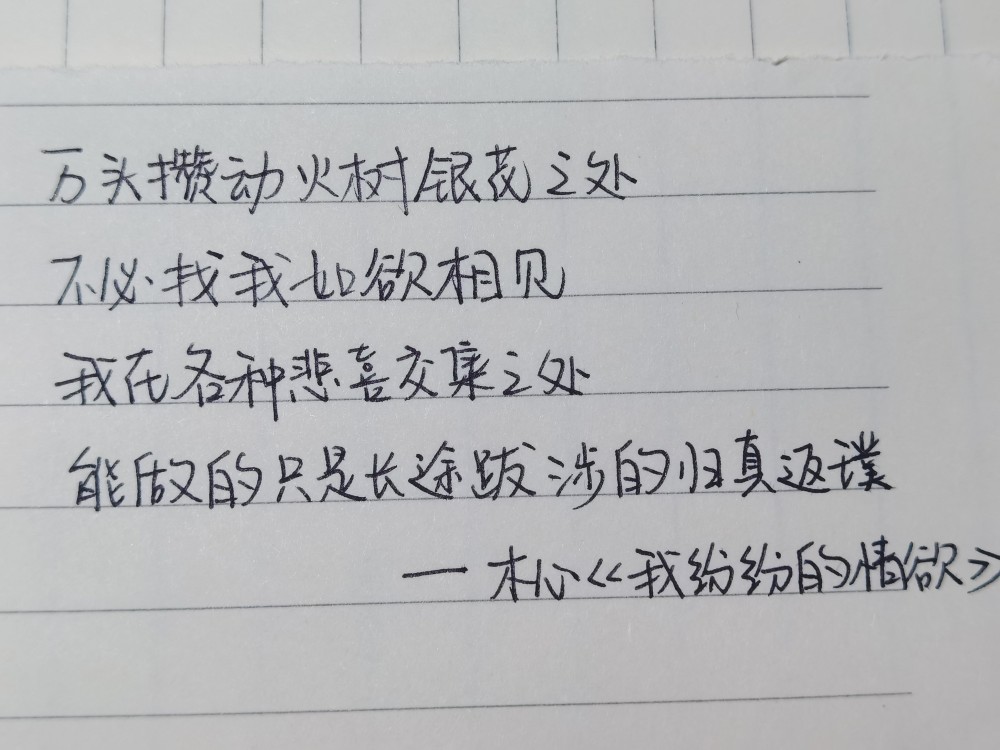 万头攒动火树银花之处
不必找我如欲相见
我在各种悲喜交集之处
能做的只是长途跋涉的归真返璞
一木心《我纷纷的情欲》